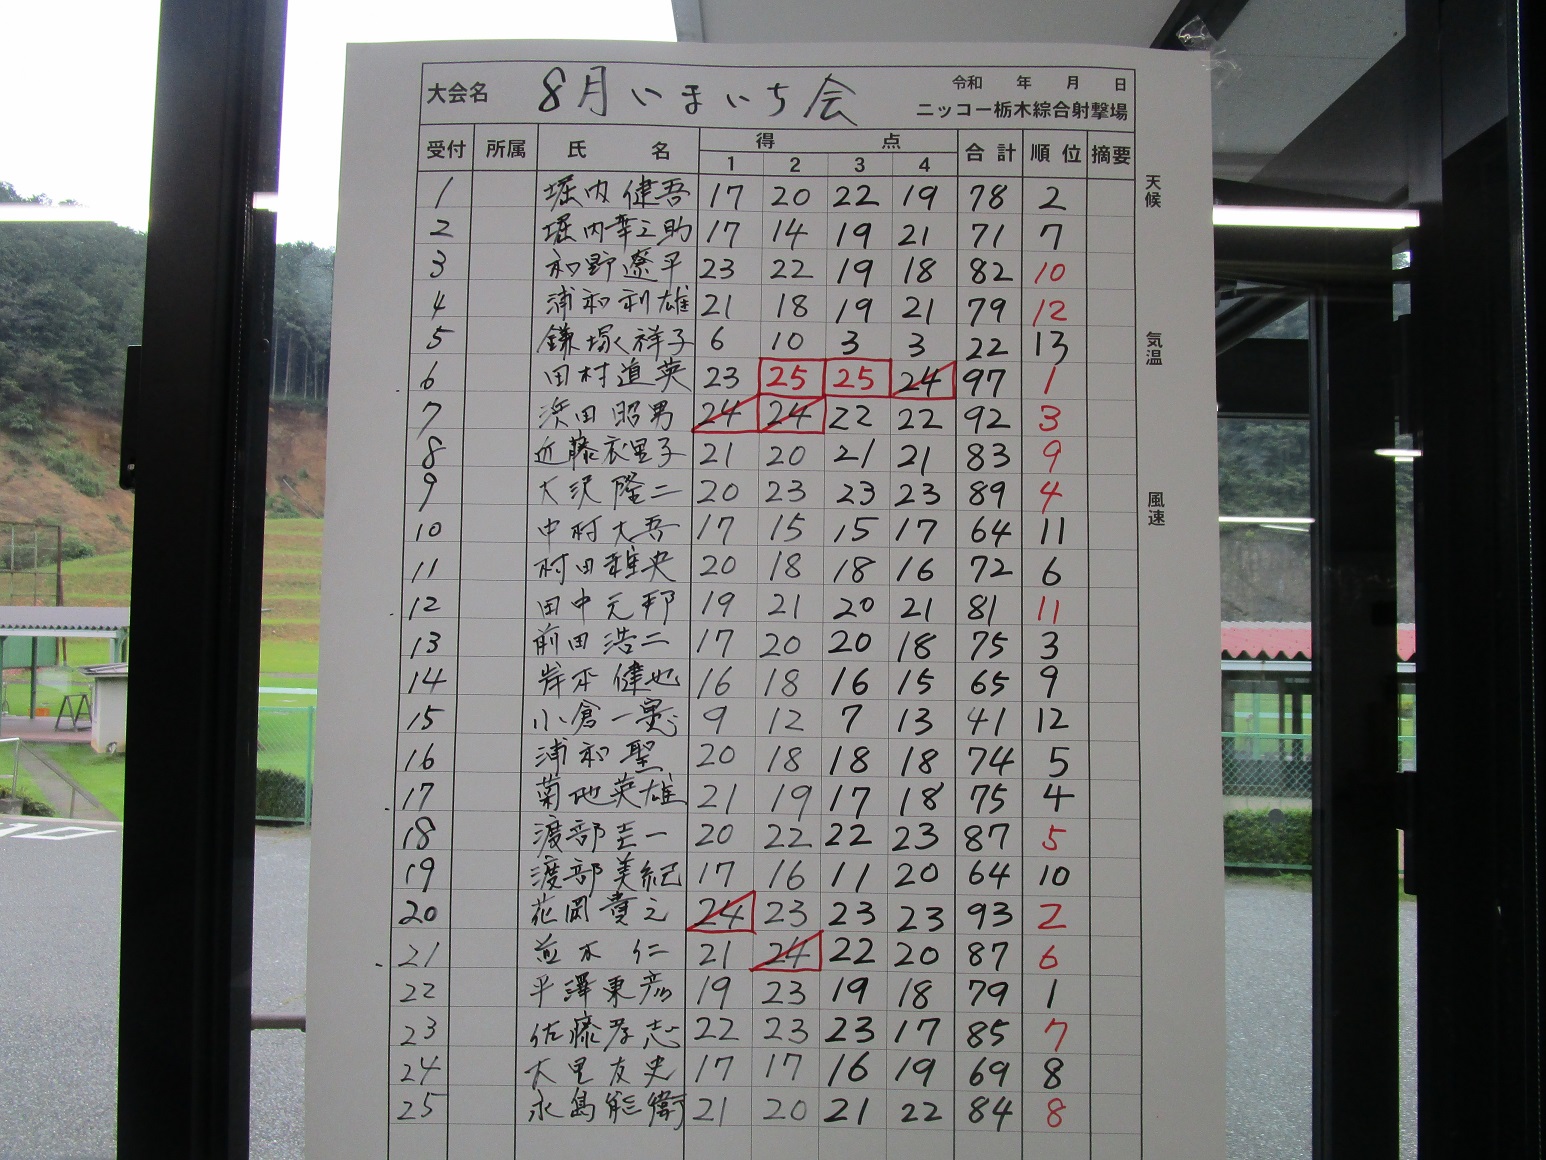 大会名 8月いまいち会 令和 年 月 日
ニッコー栃木綜合射撃場
受付 所属 氏 名 得 点 合計 順位 摘要
1 2 3 4
1 堀内健吾 17 20 22 19 78 2
2 堀内幸之助 17 14 19 21 71 7
3 和野遼平 23 22 19 18 82 10
4 浦和利雄 21 18 19 21 79 12
5 鎌塚祥子 6 10 3 3 22 13
6 田村道英 23 25 25 24 97 1
7 浜田昭男 24 24 22 22 92 3
8 近藤衣里子 21 20 21 21 83 9
9 大沢隆二 20 23 23 23 89 4
10 中村大吾 17 15 15 17 64 11
11 村田雅央 20 18 18 16 72 6
12 田中元邦 19 21 20 21 81 11
13 前田浩二 17 20 20 18 75 3
14 岸本健也 16 18 16 15 65 9
15 小倉一 9 12 7 13 41 12
16 浦和聖 20 18 18 18 74 5
17 菊地英雄 21 19 17 18 75 4
18 渡部圭一 20 22 22 23 87 5
19 渡部美紀 17 16 11 20 64 10
20 花岡貴之 24 23 23 23 93 2
21 並木仁 21 24 22 20 87 6
22 平澤東彦 19 23 19 18 79 1
23 佐藤孝志 22 23 23 17 85 7
24 大里友史 17 17 16 19 69 8
25 永島能衛 21 20 21 22 84 8
天候
気温
風速